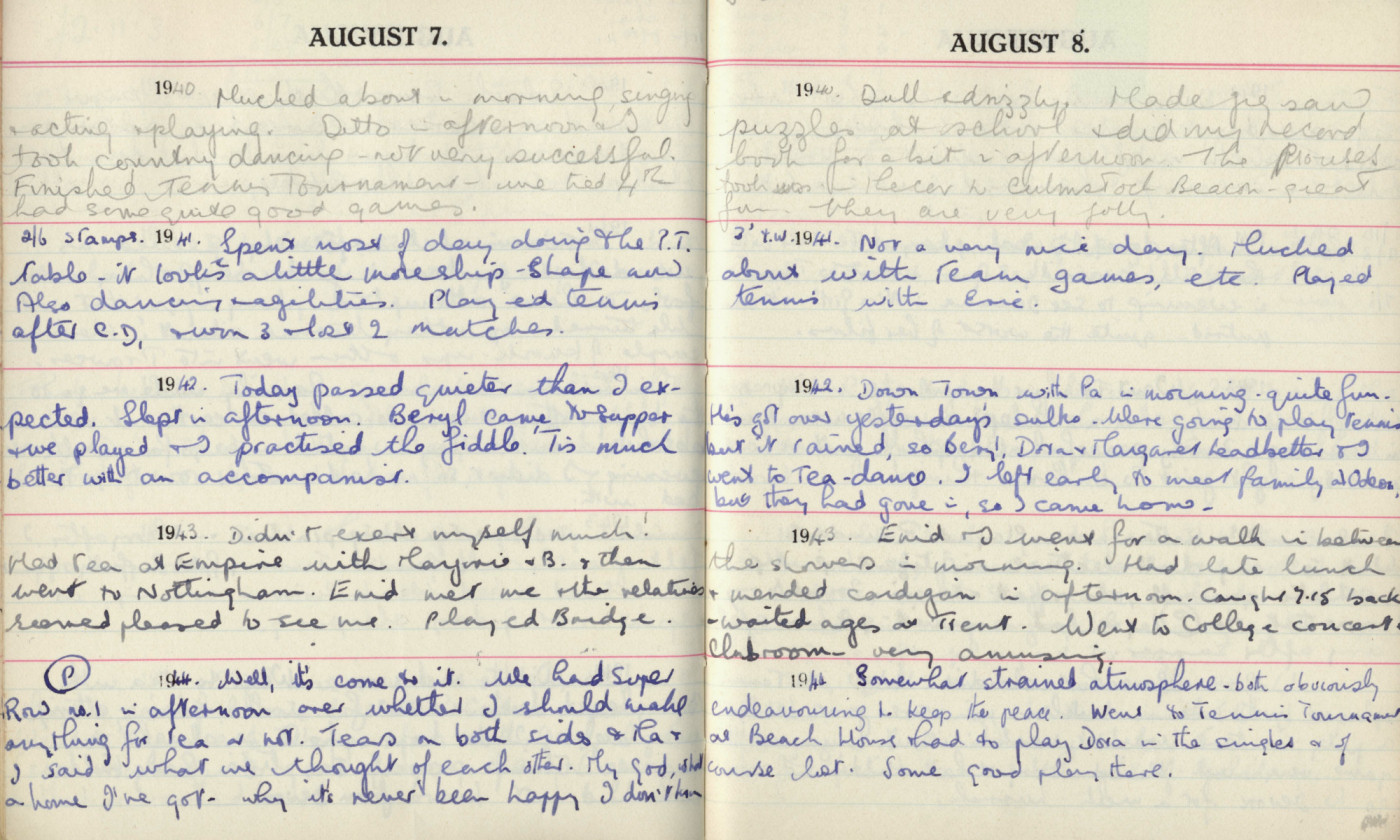 AUGUST 7.
1940. Mucked about in morning, singing
+ acting + playing. Ditto in afternoon & I
took country dancing - not very successful.
Finished Tennis Tournament - we tied 4th
had some quite good games.
2/6 stamps. 1941. Spent most of day doing the P.T.
Table - it looks a little more ship-shape now
Also dancing + agilities. Played tennis
after C.D, + won 3 + lost 2 matches
1942. Today passed quieter than I ex-
pected. Slept in afternoon. Beryl came to supper
+ we played + I practised the fiddle. 'Tis much
better with an accompanist.
1943. Didn't exert myself much!
Had tea at Empire with Marjorie + B. + then
went to Nottingham. Enid met me + the relatives
seemed pleased to see me. Played Bridge.
P 1944. Well, it's come to it. We had Super
Row no.1 in afternoon over whether I should make
anything for tea or not. Tears on both sides & Ma +
I said what we thought of each other. My God, what
a home I've got - why it's never been happy I don't know
AUGUST 8.
1940. Dull & drizzly. Made jig saw
puzzles at school & did my record
book for a bit in afternoon. The Prouses
took us in the car to Culmstock Beacon - great
fun. They are very jolly.
1941. Not a very nice day. Mucked
about with Team games, etc. Played
tennis with Eric.
1942. Down Town with Pa in morning - quite fun.
He's got over yesterday's sulks. Were going to play Tennis
but it rained, so Beryl, Dora + Margaret Leadbetter & I
went to Tea-dance. I left early to meet family at Odeon,
but they had gone in, so I came home -
1943. Enid & I went for a walk in between
the showers in morning. Had late lunch
+ mended cardigan in afternoon. Caught 7.15 back
+ waited ages at Trent. Went to College concert
Clubroom - very amusing.
1944 Somewhat strained atmosphere - both obviously
endeavouring to keep the peace. Went to Tennis Tournament
at Beach House & had to play Dora in the singles & of
course lost. Some good play there.